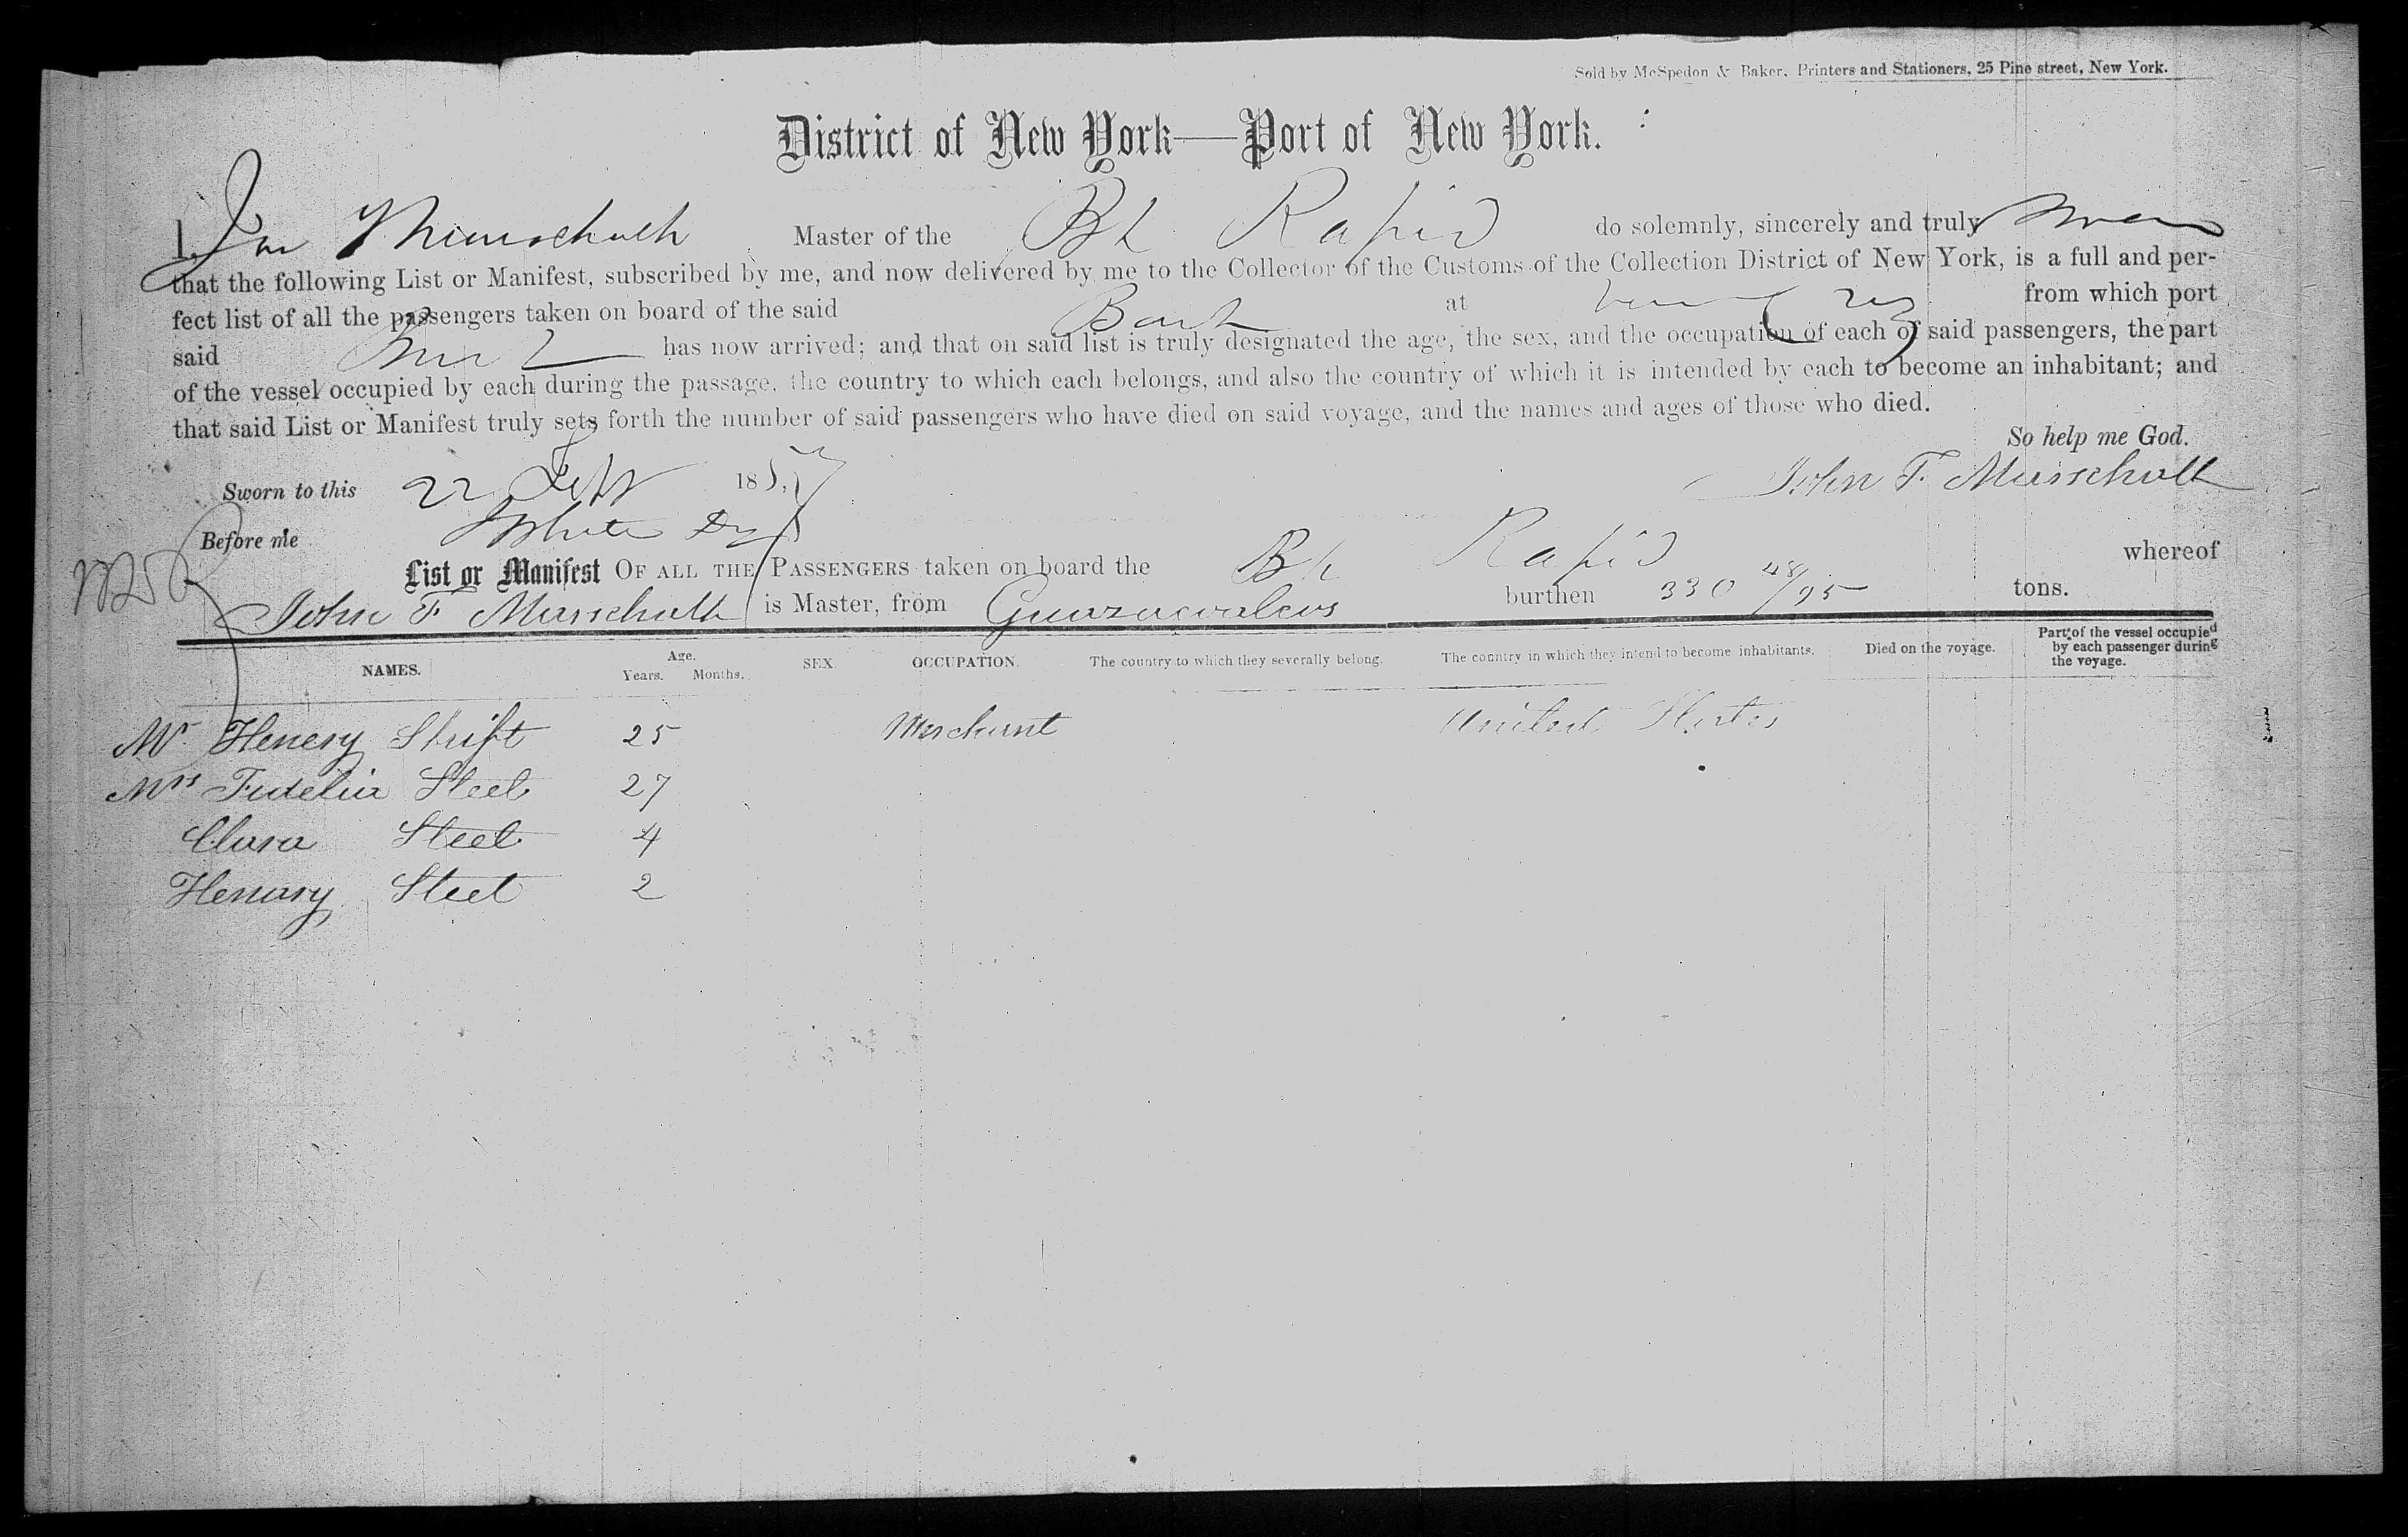 Sold by McSpedon & Baker, Printers and Stationers, 25 Pine street, New York.
District of New York—Port of New York.
I, Master of the Bk Rapid do solemnly, sincerely and truly swear
that the following List or Manifest, subscribed by me, and now delivered by me to the Collector of the Customs of the Collection District of New York, is a full and per-
fect list of all the passengers taken on board of the said Bark at from which port
said Bark has now arrived; and that on said list is truly designated the age, the sex, and the occupation of each of said passengers, the part
of the vessel occupied by each during the passage, the country to which each belongs, and also the country of which it is intended by each to become an inhabitant; and
that said List or Manifest truly sets forth the number of said passengers who have died on said voyage, and the names and ages of those who died.
So help me God.
Sworn to this 22 Sept 1857 John F. Murschutt
Before me
List or Manifest OF ALL THE PASSENGERS taken on board the Bk Rapid whereof
John F Murschutt is Master, from Guazacoalcos burthen 330 48/95 tons.
NAMES. Age. Years. Months. SEX. OCCUPATION. The country to which they severally belong. The country in which they intend to become inhabitants. Died on the voyage. Part of the vessel occupied by each passenger during the voyage.
Mr. Henery Shift 25 Merchant United States
Mrs Fidelia Steel 27
Clara Steel 4
Henary Steel 2